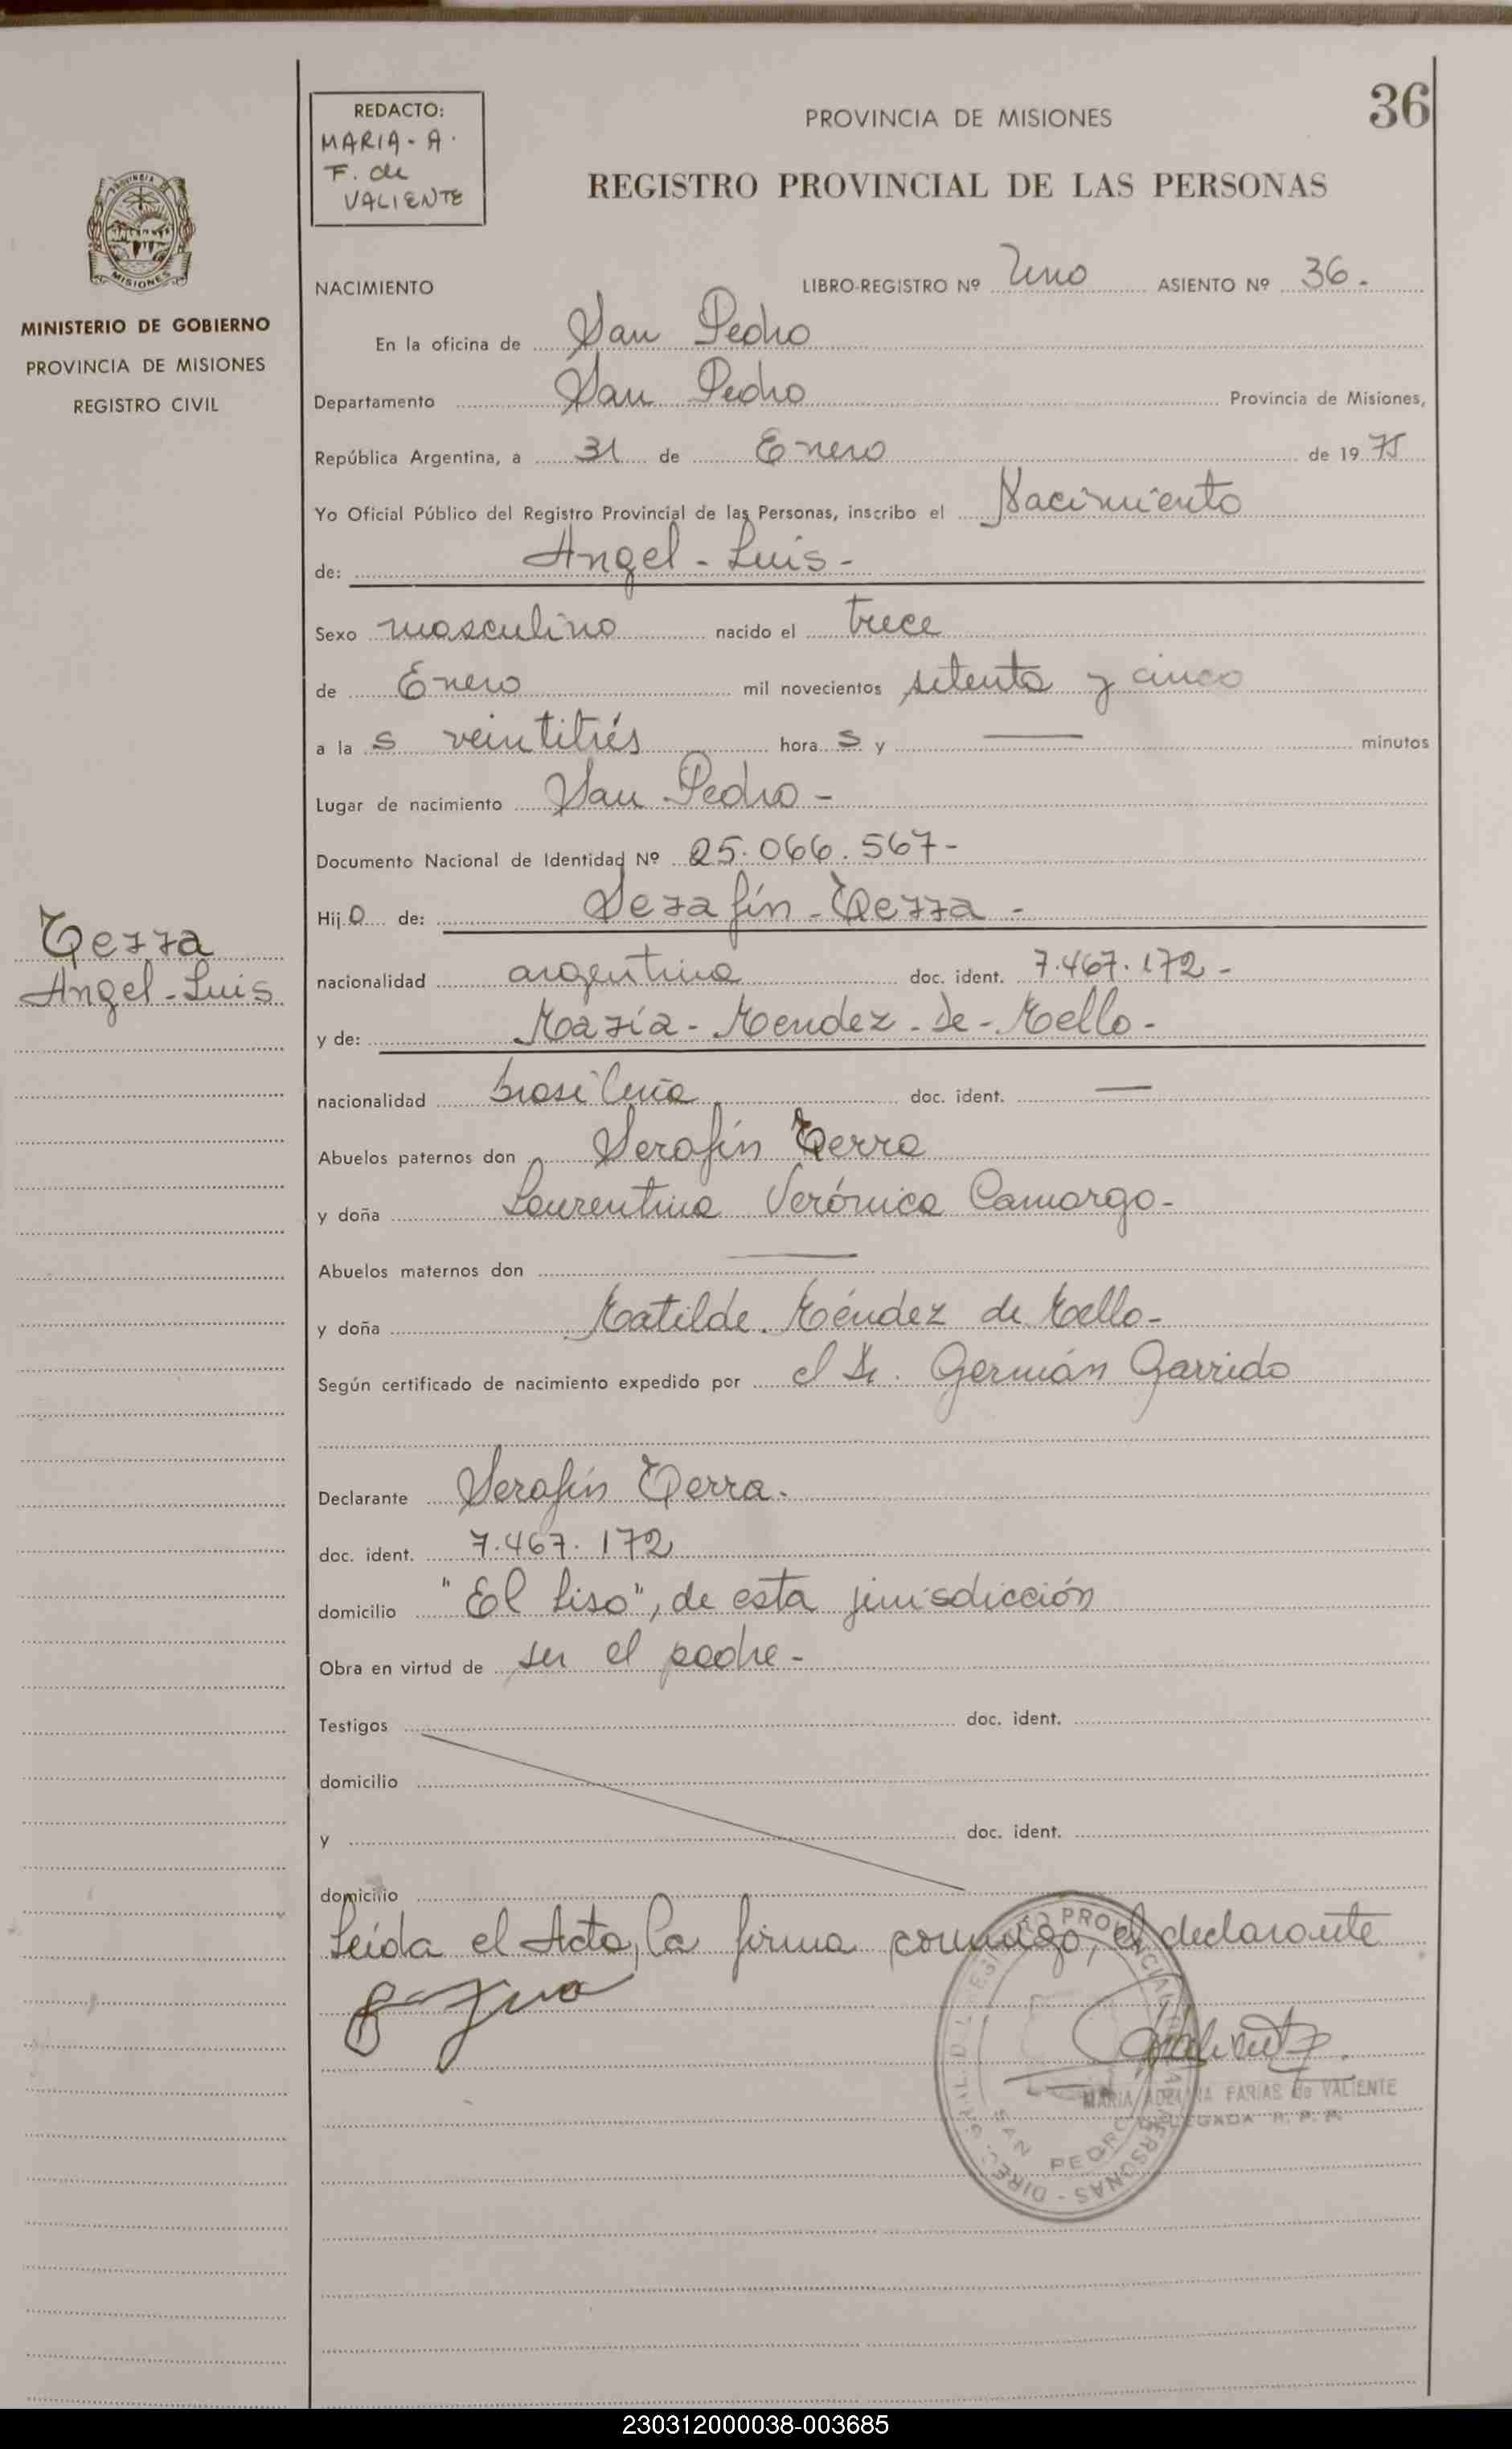 36
REDACTO:
MARIA - A.
F. de
VALIENTE
PROVINCIA DE MISIONES
REGISTRO PROVINCIAL DE LAS PERSONAS
PROVINCIA
MISIONES
MINISTERIO DE GOBIERNO
PROVINCIA DE MISIONES
REGISTRO CIVIL
NACIMIENTO LIBRO-REGISTRO Nº Uno ASIENTO Nº 36.-
En la oficina de San Pedro
Departamento San Pedro Provincia de Misiones,
República Argentina, a 31 de Enero de 1975
Yo Oficial Público del Registro Provincial de las Personas, inscribo el Nacimiento
de: Angel - Luis -
Sexo masculino nacido el trece
de Enero mil novecientos setenta y cinco
a las veintitrés horas y — minutos
Lugar de nacimiento San Pedro -
Documento Nacional de Identidad Nº 25.066.567-
Hijo de: Serafín - Terra -
Terra
Angel - Luis
nacionalidad argentina doc. ident. 7.467.172 -
y de: María - Mendez - De - Mello -
nacionalidad brasileña doc. ident. —
Abuelos paternos don Serafín Terra
y doña Laurentina Verónica Camargo -
Abuelos maternos don —
y doña Matilde Méndez de Mello -
Según certificado de nacimiento expedido por el Dr. Germán Garrido
Declarante Serafín Terra.
doc. ident. 7.467.172
domicilio "El Liso", de esta jurisdicción
Obra en virtud de ser el padre -
Testigos doc. ident.
domicilio
y doc. ident.
domicilio
Leída el Acta, la firma conmigo, el declarante
MARIA ADELINA FARIAS de VALIENTE
DELEGADA R. P. P.
SAN PEDRO
230312000038-003685